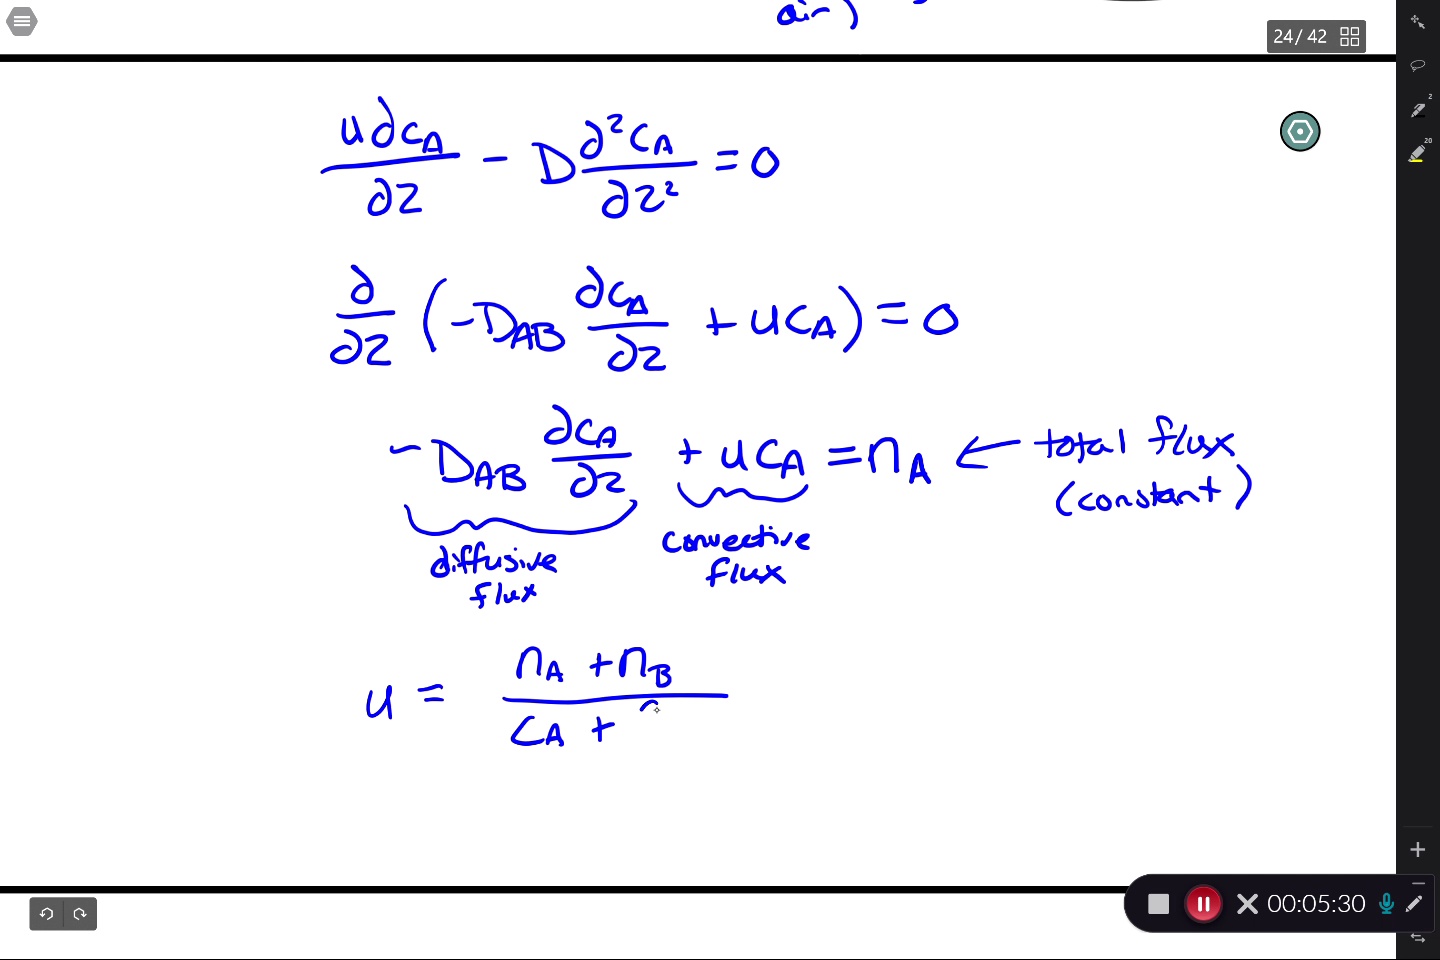 air)
24 / 42
u∂c_A/∂z − D ∂²c_A/∂z² = 0
∂/∂z (−D_AB ∂c_A/∂z + uc_A) = 0
−D_AB ∂c_A/∂z + uc_A = n_A ← total flux
(constant)
diffusive
flux
convective
flux
u = (n_A + n_B)/(c_A +
2
20
00:05:30